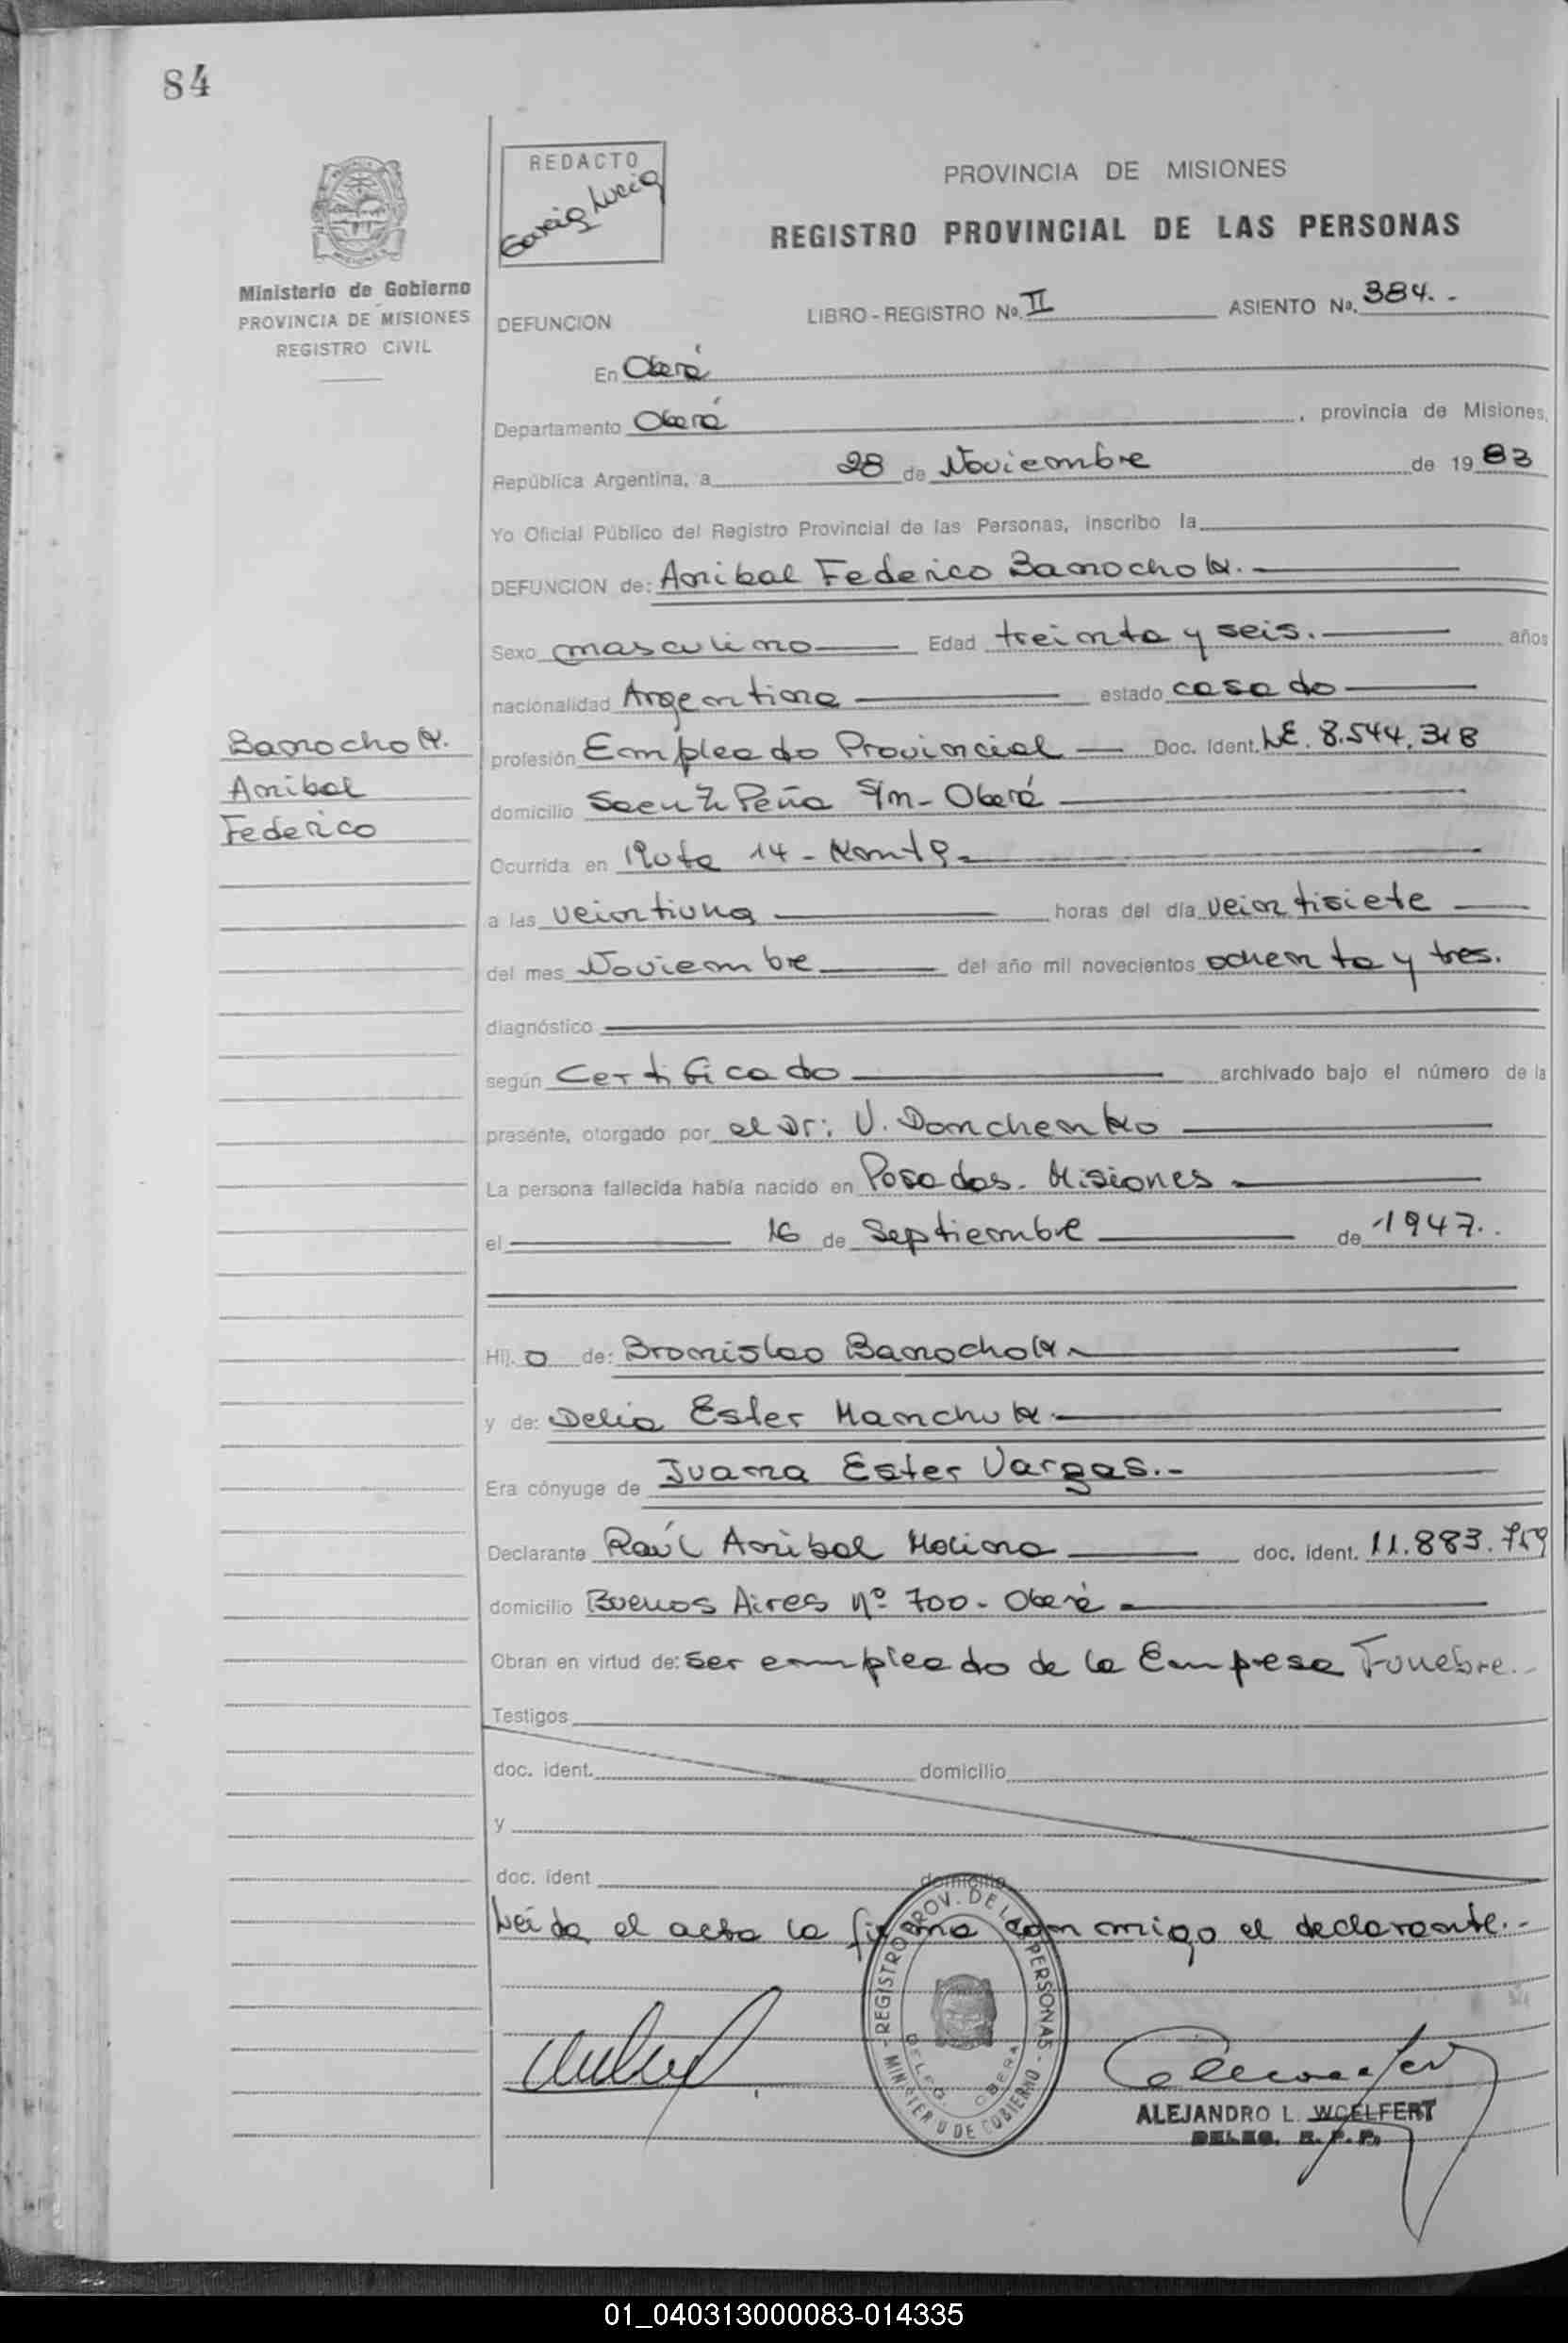 84
REDACTO
Garcia Lucia
PROVINCIA DE MISIONES
REGISTRO PROVINCIAL DE LAS PERSONAS
Ministerio de Gobierno
PROVINCIA DE MISIONES
REGISTRO CIVIL
DEFUNCION LIBRO - REGISTRO Nº. II ASIENTO Nº. 384. -
En Oberá
Departamento Oberá , provincia de Misiones,
República Argentina, a 28 de Noviembre de 1983
Yo Oficial Público del Registro Provincial de las Personas, inscribo la
DEFUNCION de: Anibal Federico Banochok.
Sexo masculino Edad treinta y seis. años
nacionalidad Argentina estado casado
Banochok.
Anibal
Federico
profesión Empleado Provincial Doc. Ident. LE. 8.544.318
domicilio Saenz Peña S/n - Oberá
Ocurrida en Ruta 14 -
a las veintiuna horas del día veintisiete
del mes Noviembre del año mil novecientos ochenta y tres.
diagnóstico
según Certificado archivado bajo el número de la
presente, otorgado por el Dr: V. Donchenko
La persona fallecida había nacido en Posadas. Misiones
el 16 de Septiembre de 1947.
Hij o de: Bronislao Banochok
y de: Delia Ester Hanchuk
Era cónyuge de Juana Ester Vargas.-
Declarante Raúl Anibal Molina doc. ident. 11.883.759
domicilio Buenos Aires Nº 700 - Oberá
Obran en virtud de: Ser empleado de la Empresa Funebre.-
Testigos
doc. ident. domicilio
y
doc. ident domicilio
Leída el acta la firma conmigo el declarante.-
REGISTRO PROV. DE LAS PERSONAS - MINISTERIO DE GOBIERNO -
DELEG. OBERA
ALEJANDRO L. WOELFERT
DELEG. R. P. P.
01_040313000083-014335